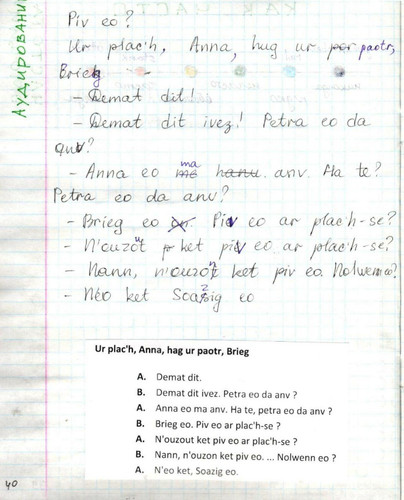 АУДИРОВАНИЕ
Piv eo?
Ur plac'h, Anna, hug ur por paotr,
Brieg
- Demat dit!
- Demat dit ivez! Petra eo da
anv?
- Anna eo ma anv. Ha te?
Petra eo da anv?
- Brieg eo Piv eo ar plac'h-se?
- N'ouzout ket piv eo ar plac'h-se?
- Nann, n'ouzon ket piv eo. Nolwenn eo?
- Néo ket Soazig eo
Ur plac'h, Anna, hag ur paotr, Brieg
A. Demat dit.
B. Demat dit ivez. Petra eo da anv ?
A. Anna eo ma anv. Ha te, petra eo da anv ?
B. Brieg eo. Piv eo ar plac'h-se ?
A. N'ouzout ket piv eo ar plac'h-se ?
B. Nann, n'ouzon ket piv eo. ... Nolwenn eo ?
A. N'eo ket, Soazig eo.
40